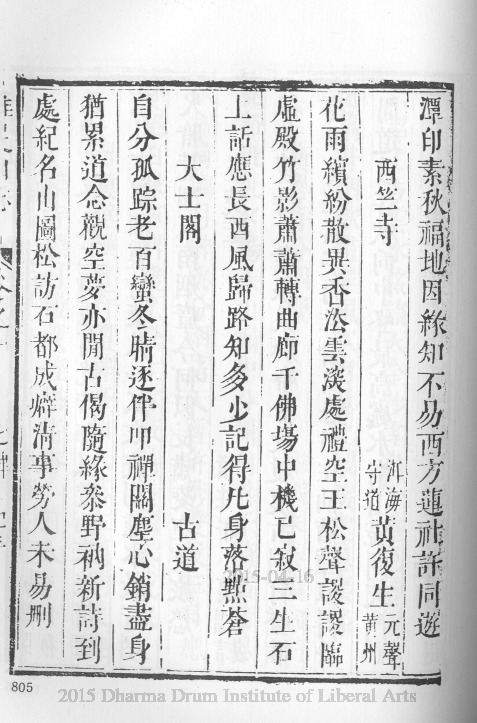 潭印素秋福地因緣知不易西方蓮社許同遊
西竺寺 洱海守道 黃復生 元聲黃州
花雨繽紛散異香法雲深處禮空王松聲謖謖臨
虛殿竹影蕭蕭轉曲廊千佛場中機已寂三生石
上話應長西風歸路知多少記得凡身落點蒼
大士閣 古道
自分孤踪老百蠻冬晴逐伴叩禪關塵心銷盡身
猶累道念觀空夢亦閒古偈隨緣叅野衲新詩到
處紀名山圖松訪石都成癖清事勞人未易刪
805
2015-04-16
2015 Dharma Drum Institute of Liberal Arts